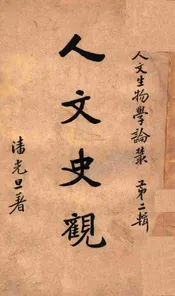 人文生物學論叢 第二輯
人文史觀
潘光旦著